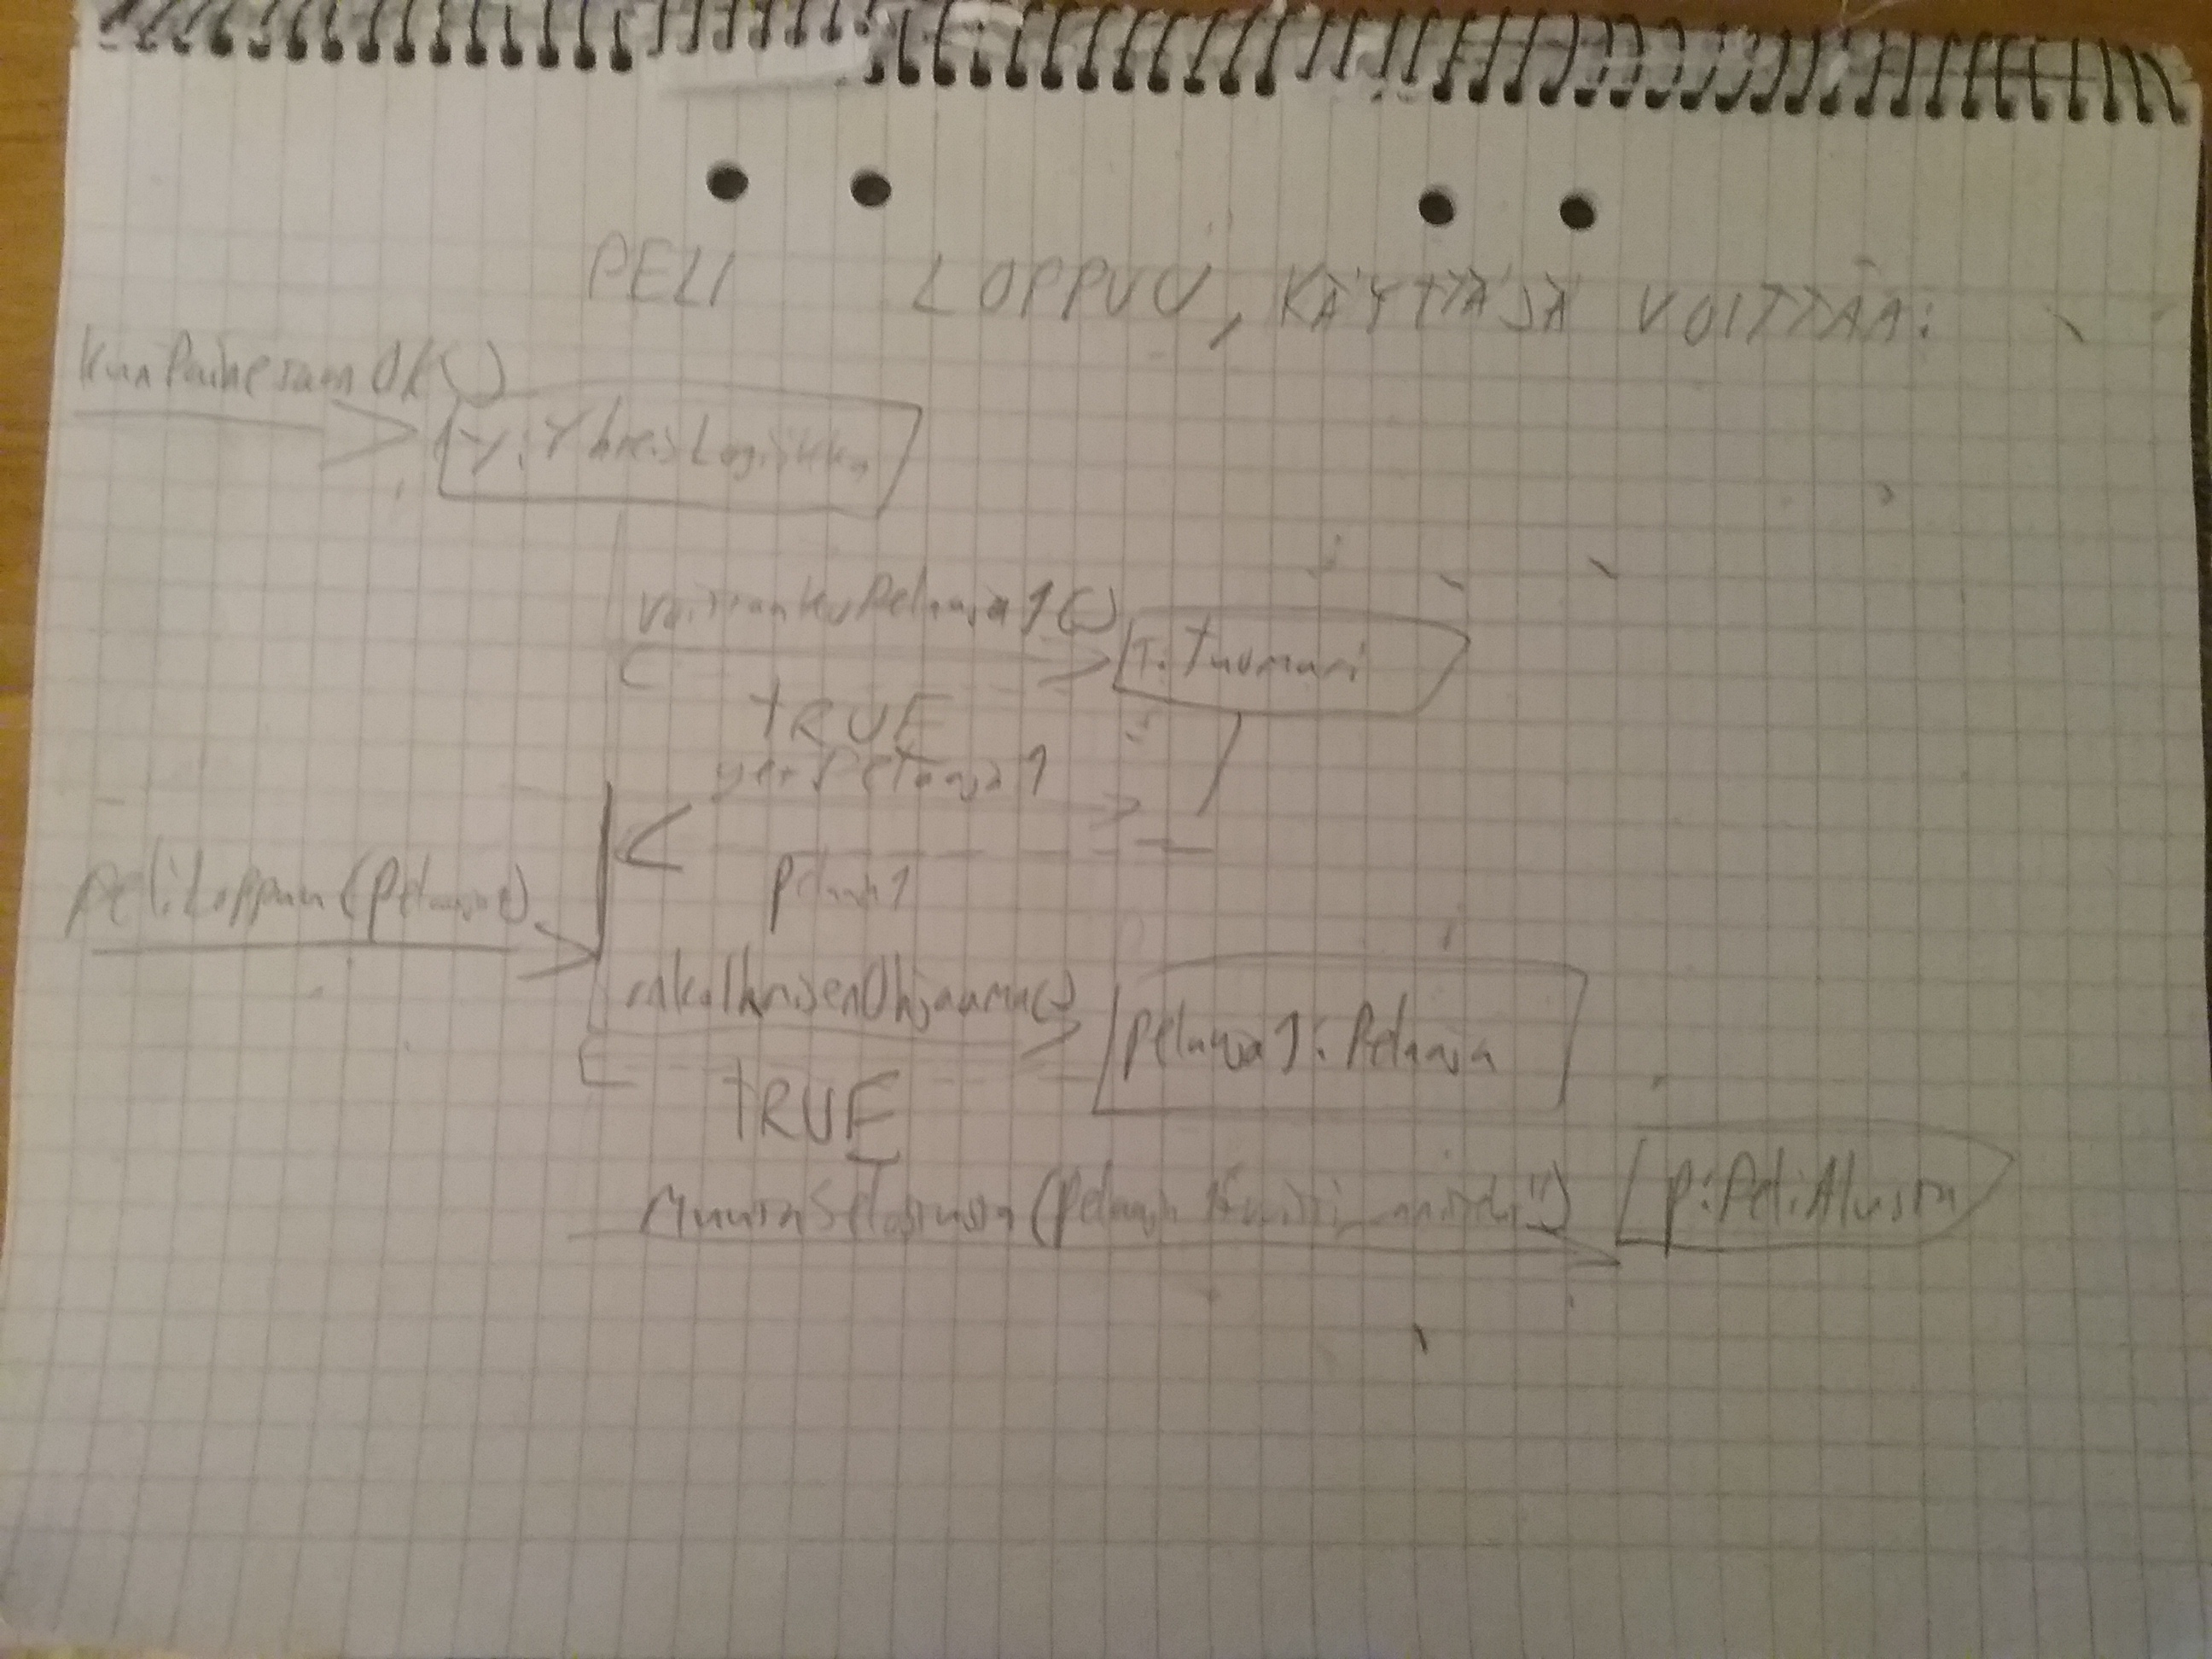 PELI LOPPUU, KÄYTTÄJÄ VOITTAA:
kunPainetaanOK()
y:YhteisLogiikka
voittaakoPelaaja1()
T:Tuomari
TRUE
getPelaaja1
pelaaja1
peliLoppuu(pelaaja1)
onkoIhmisenOhjaama()
pelaaja1:Pelaaja
TRUE
MuutaSelostusta(pelaaja
p:PeliAlusta